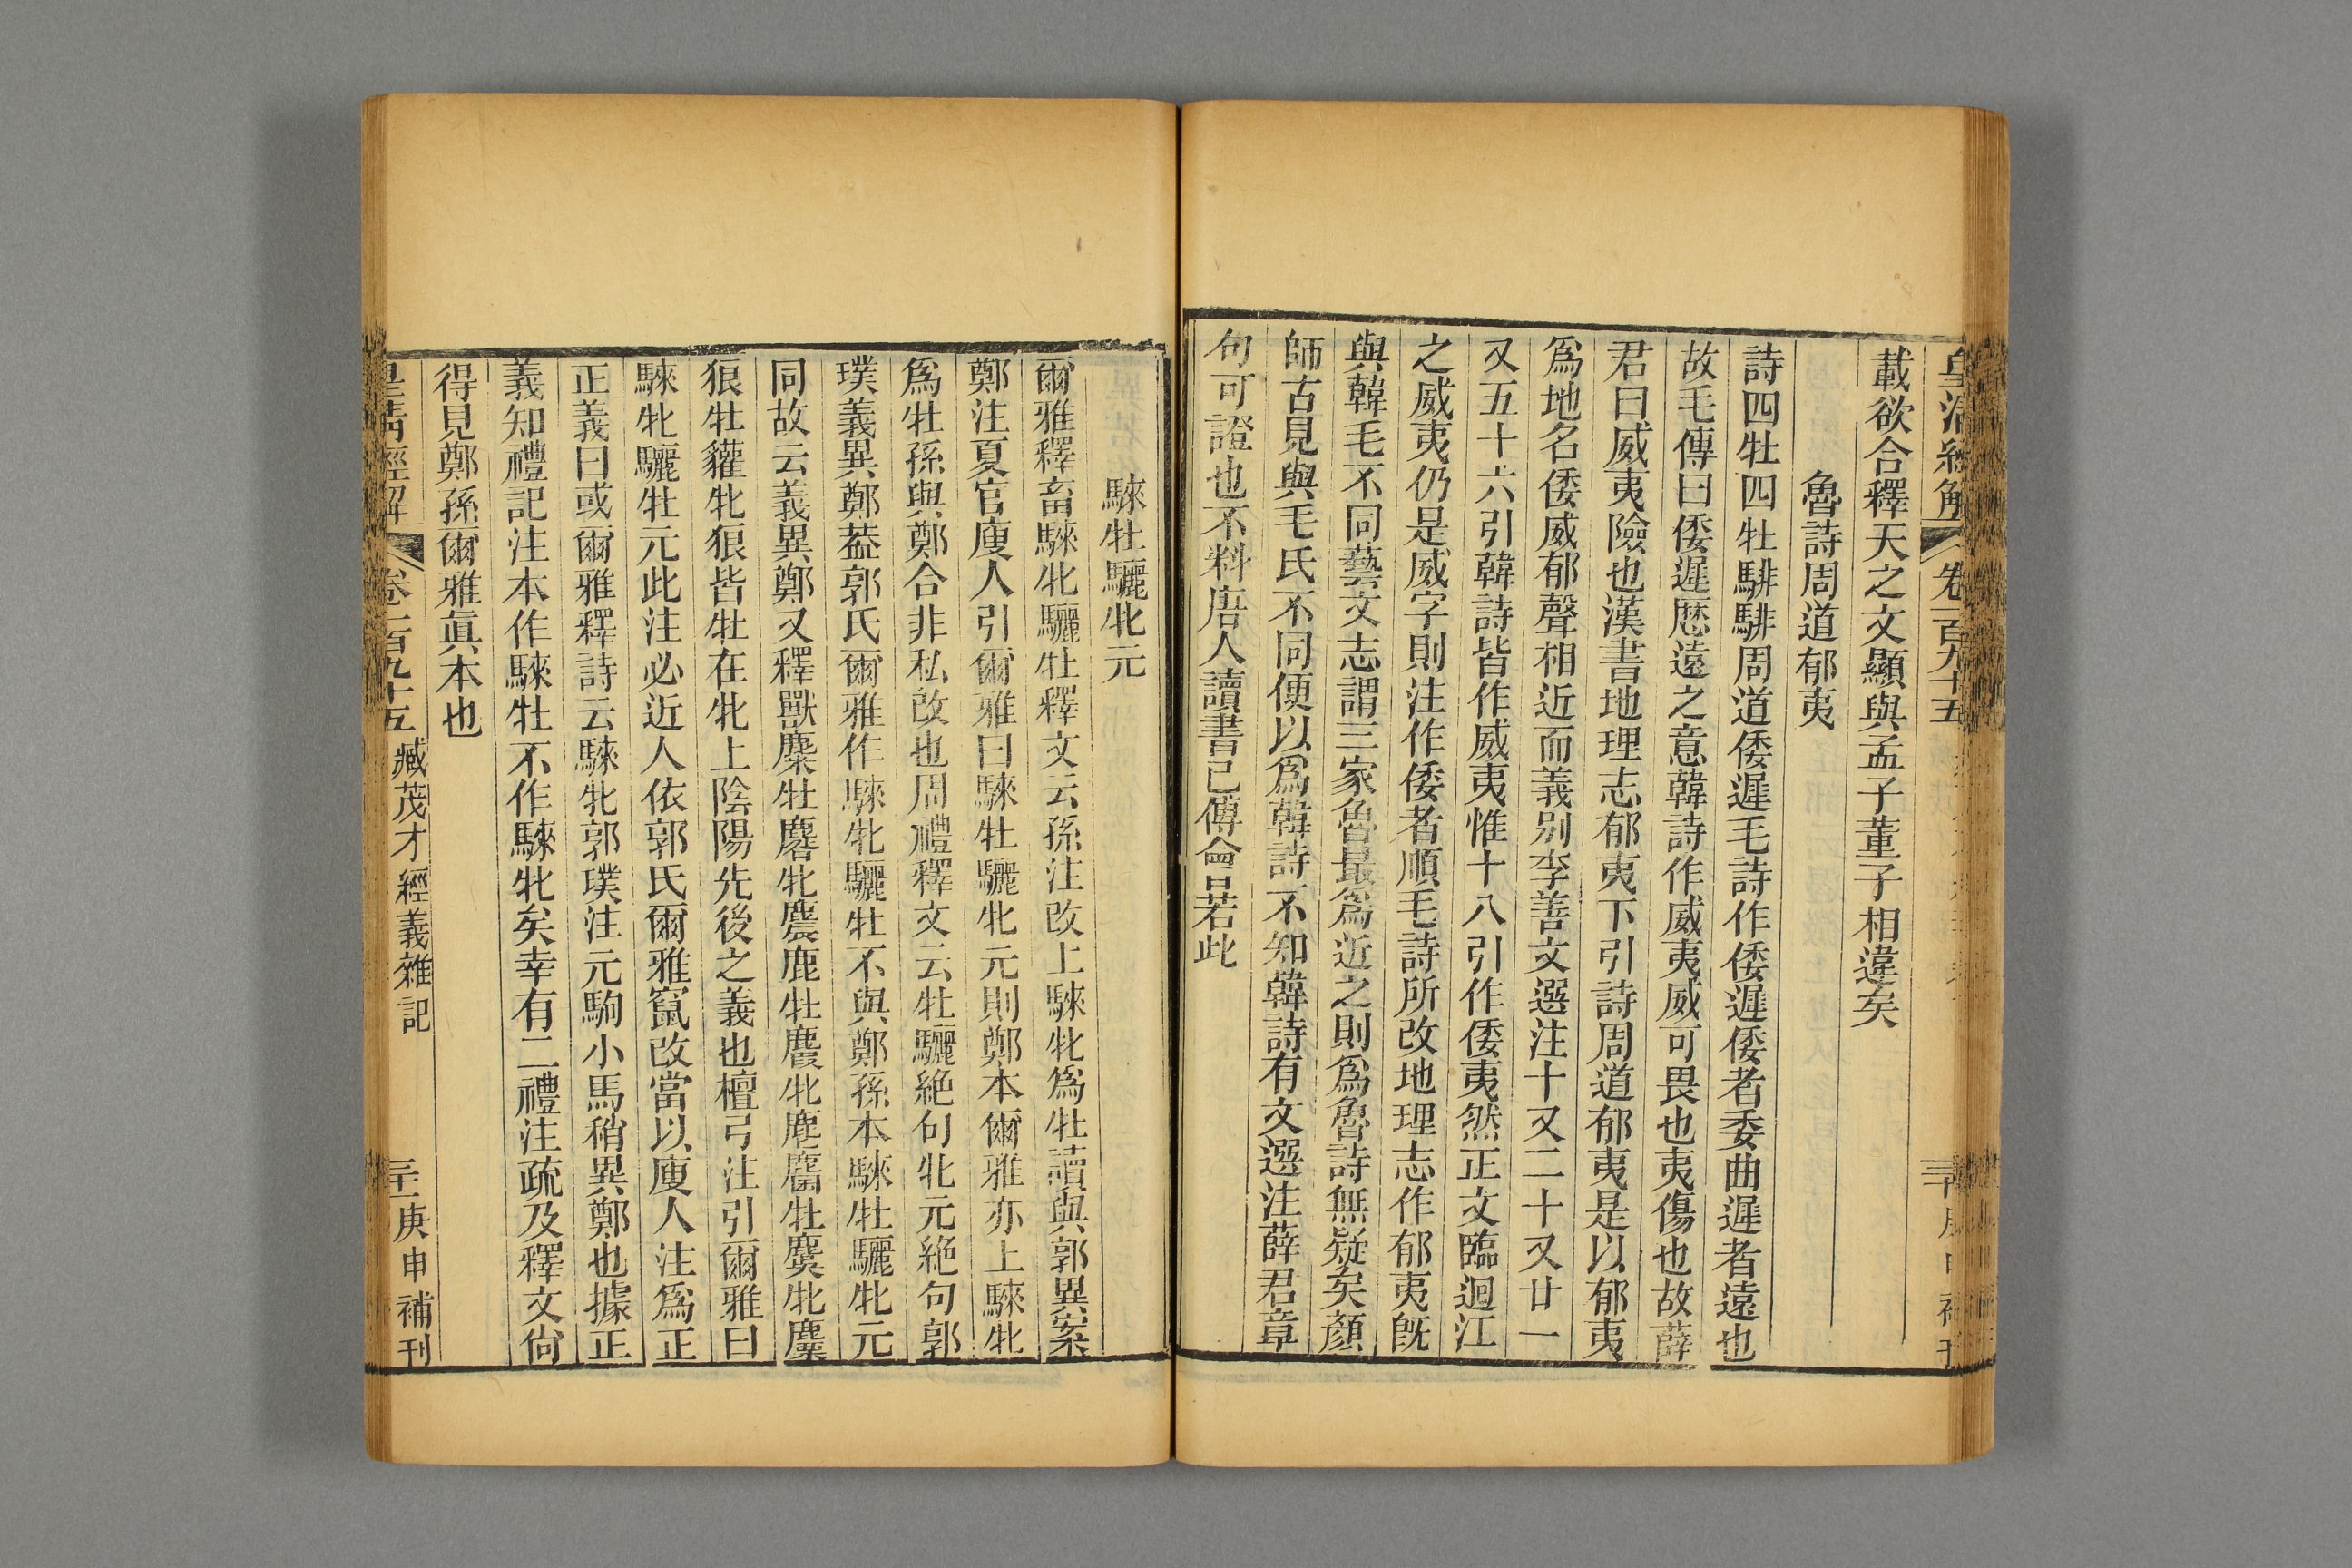 皇清經解 卷一百九十五
載欲合釋天之文顯與孟子董子相違矣
魯詩周道郁夷
詩四牡四牡騑騑周道倭遲毛詩作倭遲倭者委曲遲者遠也
故毛傳曰倭遲歷遠之意韓詩作威夷威可畏也夷傷也故薛
君曰威夷險也漢書地理志郁夷下引詩周道郁夷是以郁夷
爲地名倭威郁聲相近而義別李善文選注十又二十又廿一
又五十六引韓詩皆作威夷惟十八引作倭夷然正文臨迴江
之威夷仍是威字則注作倭者順毛詩所改地理志作郁夷旣
與韓毛不同藝文志謂三家魯最爲近之則爲魯詩無疑矣顏
師古見與毛氏不同便以爲韓詩不知韓詩有文選注薛君章
句可證也不料唐人讀書已傅會若此
騋牡驪牝元
爾雅釋畜騋牝驪牡釋文云孫注改上騋牝爲牡讀與郭異案
鄭注夏官廋人引爾雅曰騋牡驪牝元則鄭本爾雅亦上騋牝
爲牡孫與鄭合非私改也周禮釋文云牡驪絕句牝元絕句郭
璞義異鄭葢郭氏爾雅作騋牝驪牡不與鄭孫本騋牡驪牝元
同故云義異鄭又釋獸麋牡麔牝麎鹿牡麚牝麀麕牡麌牝麜
狼牡貛牝狼皆牡在牝上陰陽先後之義也檀弓注引爾雅曰
騋牝驪牡元此注必近人依郭氏爾雅竄改當以廋人注爲正
正義曰或爾雅釋詩云騋牝郭璞注元駒小馬稍異鄭也據正
義知禮記注本作騋牡不作騋牝矣幸有二禮注疏及釋文尙
得見鄭孫爾雅眞本也
皇清經解 卷一百九十五 臧茂才經義雜記 三十一 庚申補刊